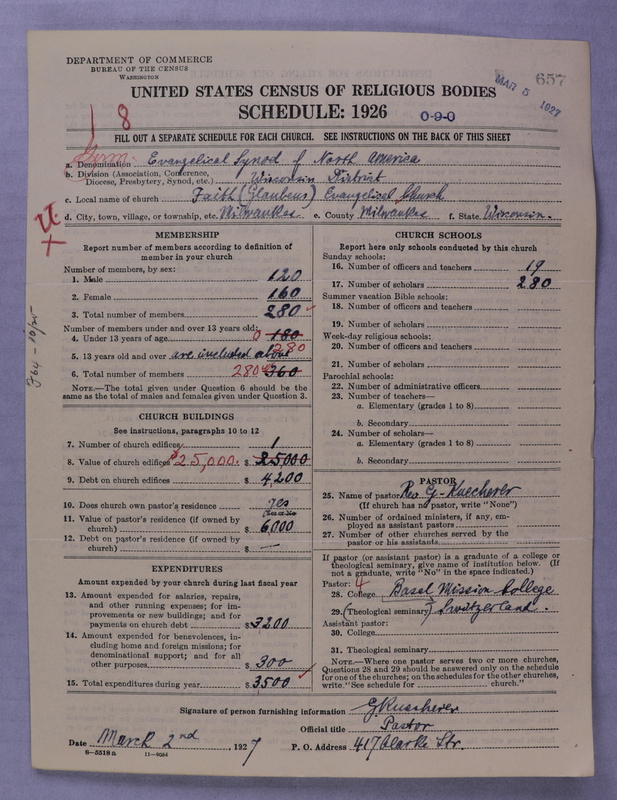 DEPARTMENT OF COMMERCE
BUREAU OF THE CENSUS
WASHINGTON
MAR 5 1927
657
UNITED STATES CENSUS OF RELIGIOUS BODIES
SCHEDULE: 1926
0-9-0
18
FILL OUT A SEPARATE SCHEDULE FOR EACH CHURCH. SEE INSTRUCTIONS ON THE BACK OF THIS SHEET
Germ.
a. Denomination Evangelical Synod of North America
b. Division (Association, Conference, Diocese, Presbytery, Synod, etc.) Wisconsin District
c. Local name of church Faith (Glaubens) Evangelical Church
d. City, town, village, or township, etc. Milwaukee e. County Milwaukee f. State Wisconsin.
MEMBERSHIP
Report number of members according to definition of
member in your church
Number of members, by sex:
1. Male 120
2. Female 160
3. Total number of members 280
Number of members under and over 13 years old:
4. Under 13 years of age 0 180
5. 13 years old and over are included above 280
6. Total number of members 280 360
NOTE.—The total given under Question 6 should be the
same as the total of males and females given under Question 3.
CHURCH BUILDINGS
See instructions, paragraphs 10 to 12
7. Number of church edifices 1
8. Value of church edifices $25,000. $ 25000
9. Debt on church edifices $ 4,200
10. Does church own pastor's residence yes
(Yes or No)
11. Value of pastor's residence (if owned by
church) $ 6,000
12. Debt on pastor's residence (if owned by
church) $ —
EXPENDITURES
Amount expended by your church during last fiscal year
13. Amount expended for salaries, repairs,
and other running expenses; for im-
provements or new buildings; and for
payments on church debt $ 3200
14. Amount expended for benevolences, in-
cluding home and foreign missions; for
denominational support; and for all
other purposes $ 300
15. Total expenditures during year $ 3500
CHURCH SCHOOLS
Report here only schools conducted by this church
Sunday schools:
16. Number of officers and teachers 19
17. Number of scholars 280
Summer vacation Bible schools:
18. Number of officers and teachers
19. Number of scholars
Week-day religious schools:
20. Number of officers and teachers
21. Number of scholars
Parochial schools:
22. Number of administrative officers
23. Number of teachers—
a. Elementary (grades 1 to 8)
b. Secondary
24. Number of scholars—
a. Elementary (grades 1 to 8)
b. Secondary
PASTOR
25. Name of pastor Rev. G. Kuecherer
(If church has no pastor, write "None")
26. Number of ordained ministers, if any, em-
ployed as assistant pastors
27. Number of other churches served by the
pastor or his assistants
If pastor (or assistant pastor) is a graduate of a college or
theological seminary, give name of institution below. (If
not a graduate, write "No" in the space indicated.)
Pastor: 4
28. College Basel Mission College
29. (Theological seminary) Switzerland.
Assistant pastor:
30. College
31. Theological seminary
NOTE.—Where one pastor serves two or more churches,
Questions 28 and 29 should be answered only on the schedule
for one of the churches; on the schedules for the other churches,
write, "See schedule for church."
Signature of person furnishing information G. Kuecherer
Official title Pastor
Date March 2nd, 1927 P. O. Address 417 Clarke Str.
8-5518a 11-9084